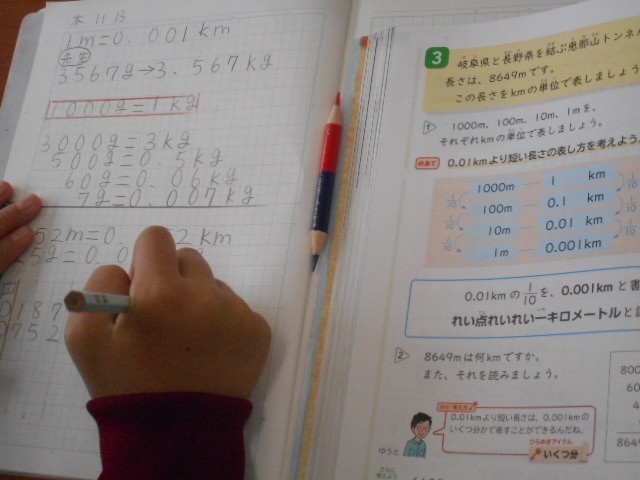 木 11 13
1m=0.001km
3567g→3.567kg
1000g=1kg
3000g=3kg
500g=0.5kg
60g=0.06kg
7g=0.007kg
52m=0. 52km
5g=0.0
187
0752
3
岐阜県と長野県を結ぶ恵那山トンネル
長さは、8649mです。
この長さをkmの単位で表しましょう
1 1000m、100m、10m、1mを、
それぞれkmの単位で表しましょう。
めあて 0.01kmより短い長さの表し方を考えよう。
1000m 1 km
1/10 100m 0.1 km 1/10
1/10 10m 0.01 km 1/10
1/10 1m 0.001km 1/10
0.01kmの1/10を、0.001kmと書
れい点れいれい一キロメートルと
2 8649mは何kmですか。
また、それを読みましょう。
800
60
4
8649
0.01kmより短い長さは、0.001kmの
いくつ分かで表すことができるんだね。
ゆうと
ひらめきアイテム
いくつ分